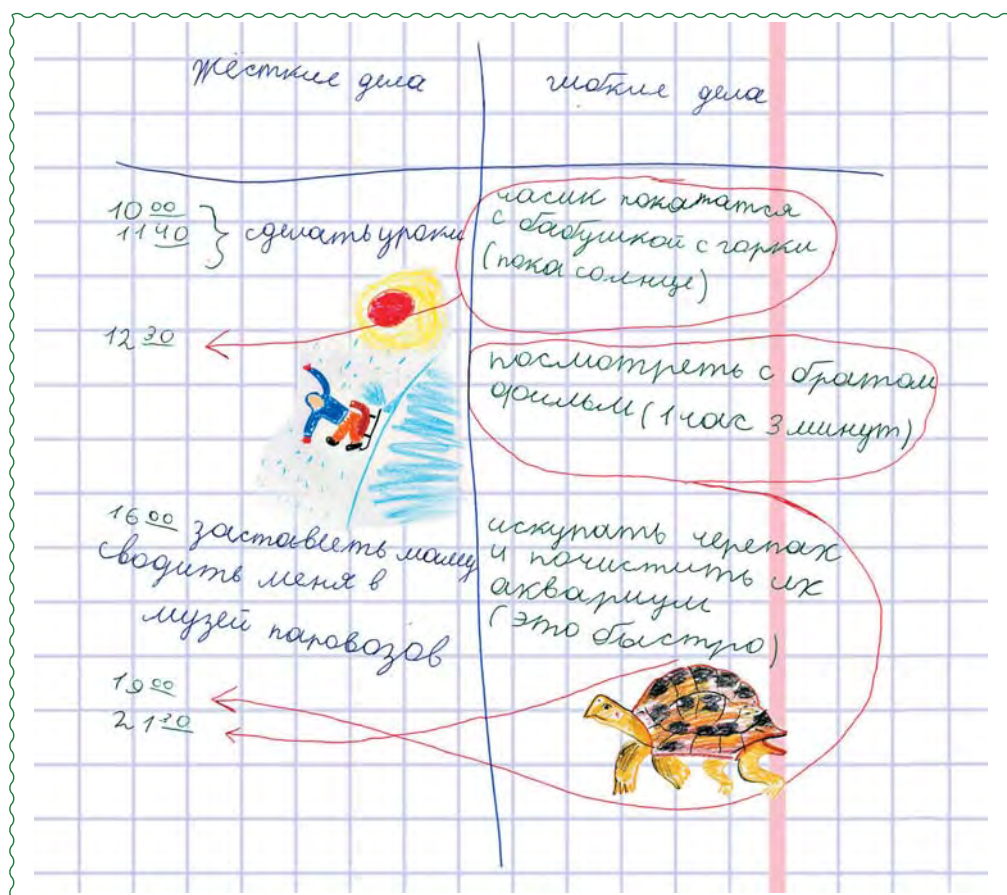 жёсткие дела
гибкие дела
10 00
11 40
сделать уроки
12 30
16 00 заставить маму
сводить меня в
музей паровозов
19 00
21 30
часик покататся
с бабушкой с горки
(пока солнце)
посмотреть с братом
фильм (1 час 3 минут)
искупать черепах
и почистить их
аквариум
(это быстро)